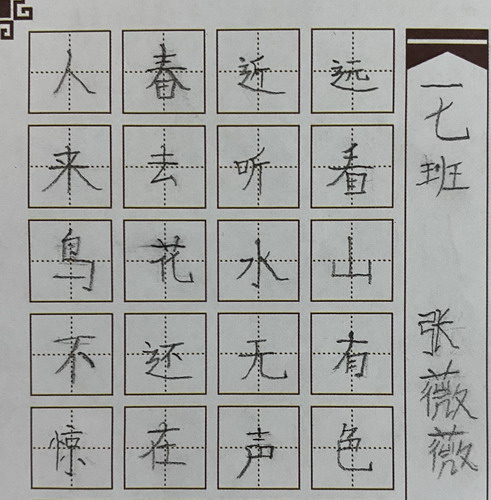 一七班 张薇薇
远看山有色
近听水无声
春去花还在
人来鸟不惊